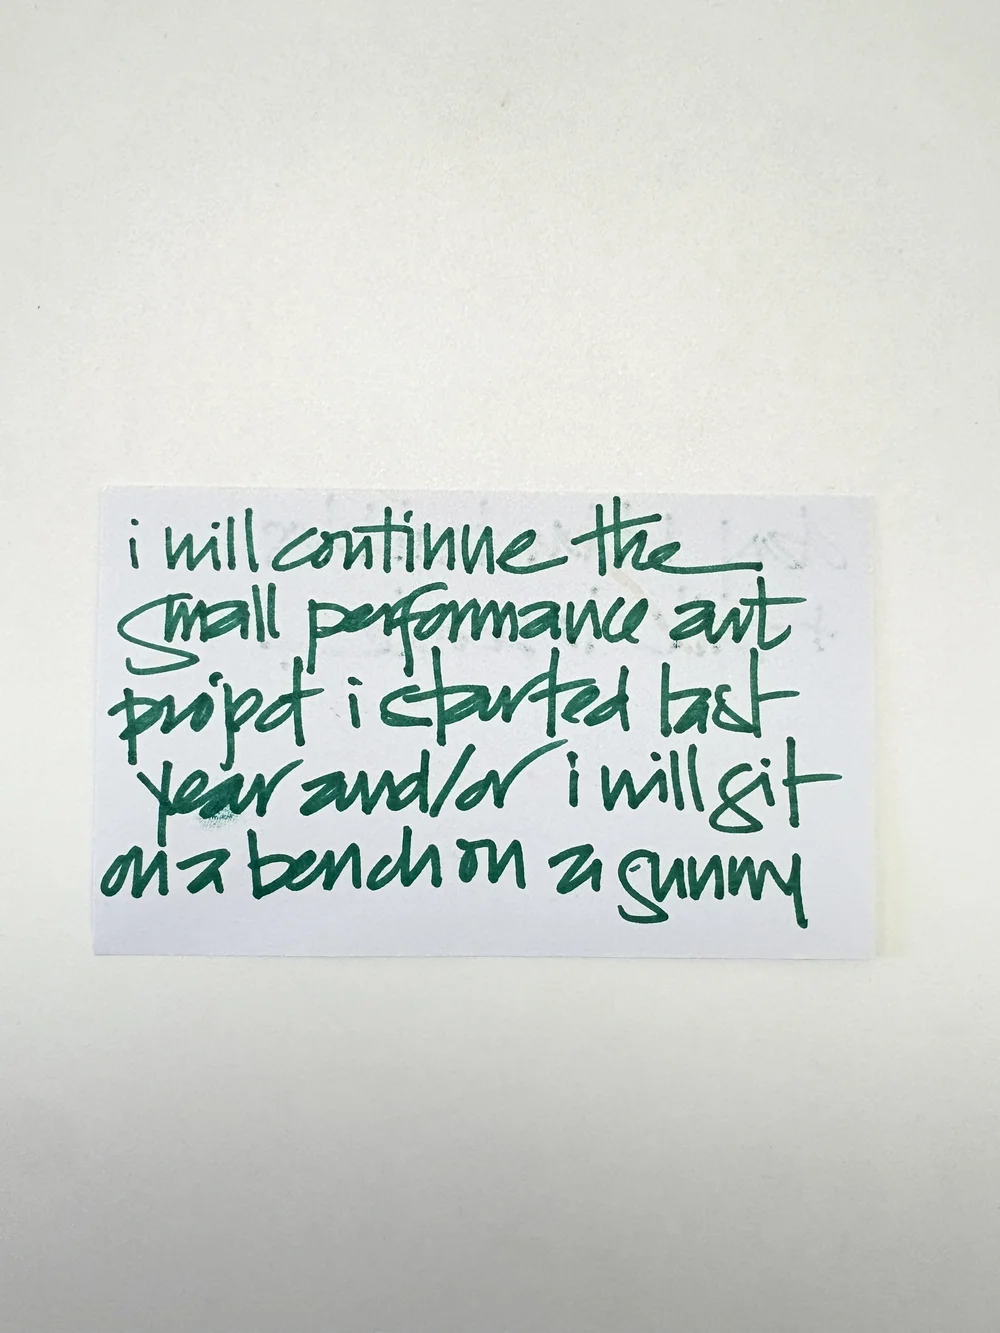 i will continue the
small performance art
project i started last
year and/or i will sit
on a bench on a sunny